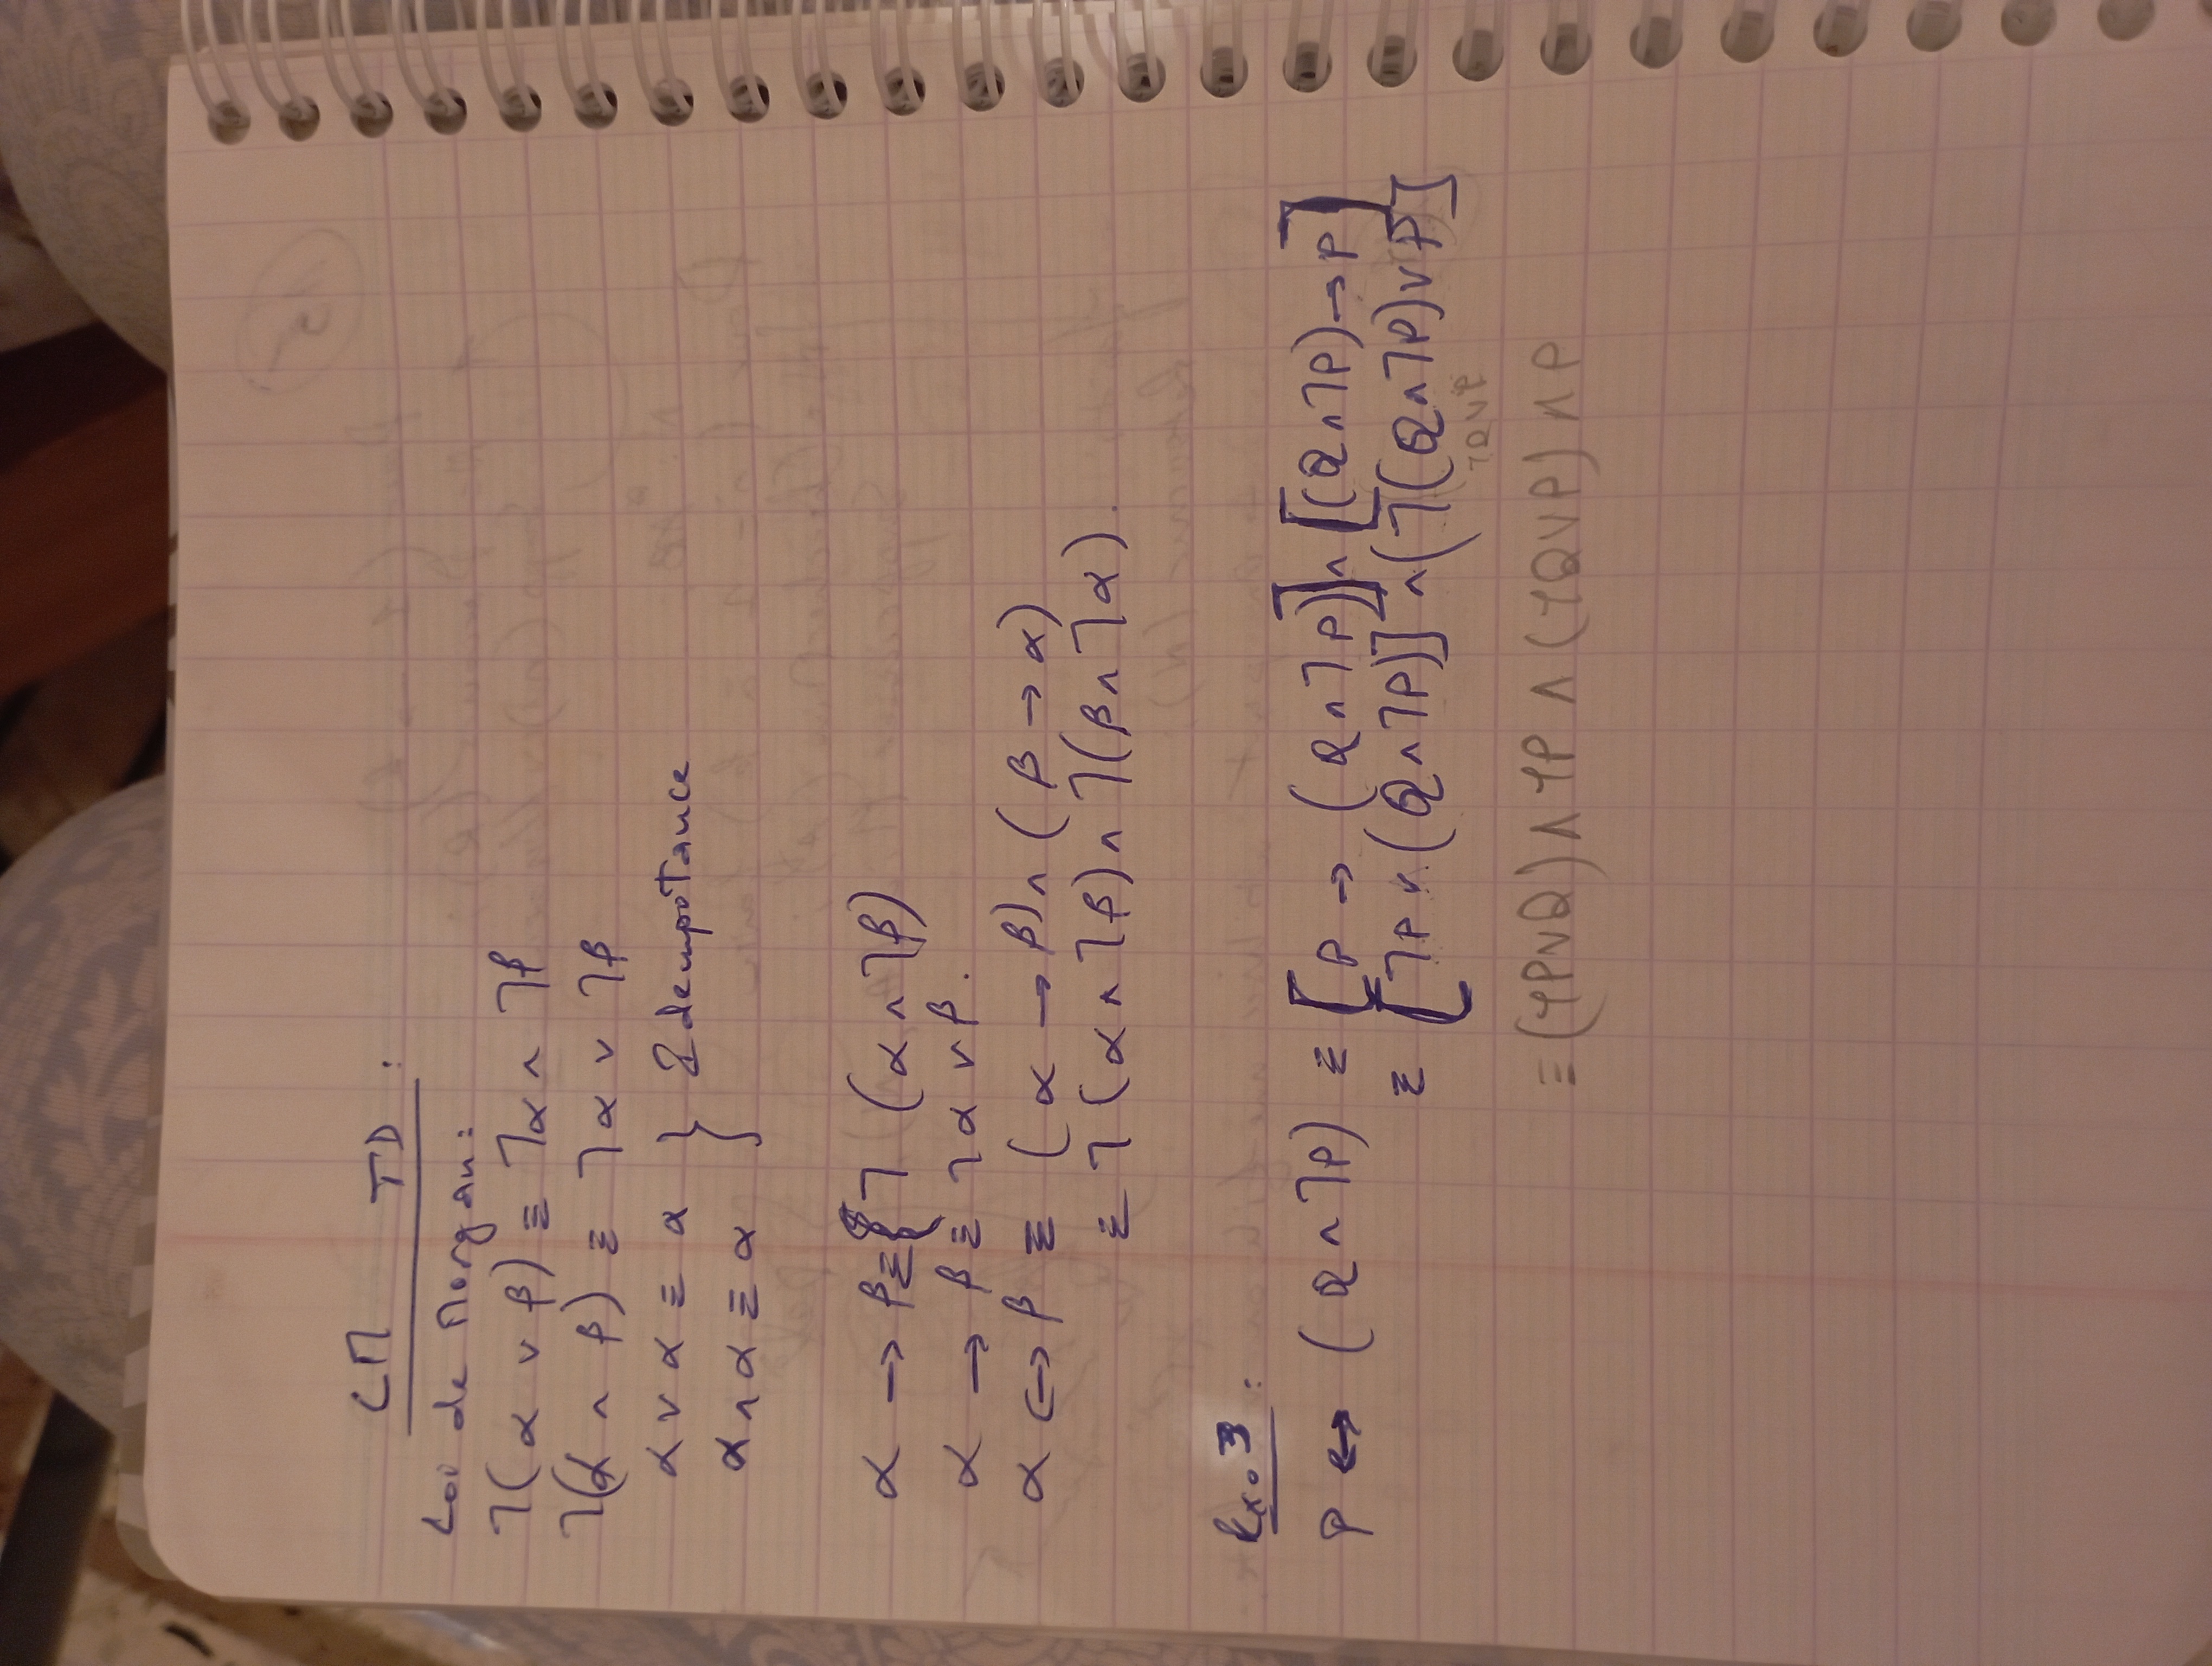 CM TD :
Loi de Morgan :
⌉(α ∨ β) ≡ ⌉α ∧ ⌉β
⌉(α ∧ β) ≡ ⌉α ∨ ⌉β
α ∨ α ≡ α } Idempotance
α ∧ α ≡ α
α → β ≡ ⌉ (α ∧ ⌉β)
α → β ≡ ⌉α ∨ β.
α ↔ β ≡ (α → β) ∧ (β → α)
≡ ⌉(α ∧ ⌉β) ∧ ⌉(β ∧ ⌉α).
Exo 3 :
P ↔ (Q ∧ ⌉P) ≡ [P → (Q ∧ ⌉P)] ∧ [(Q ∧ ⌉P) → P]
≡ [⌉P ∨ (Q ∧ ⌉P)] ∧ (⌉(Q ∧ ⌉P) ∨ P]
⌉Q ∨ P
≡ (⌉P ∨ Q) ∧ ⌉P ∧ (⌉Q ∨ P) ∧ P